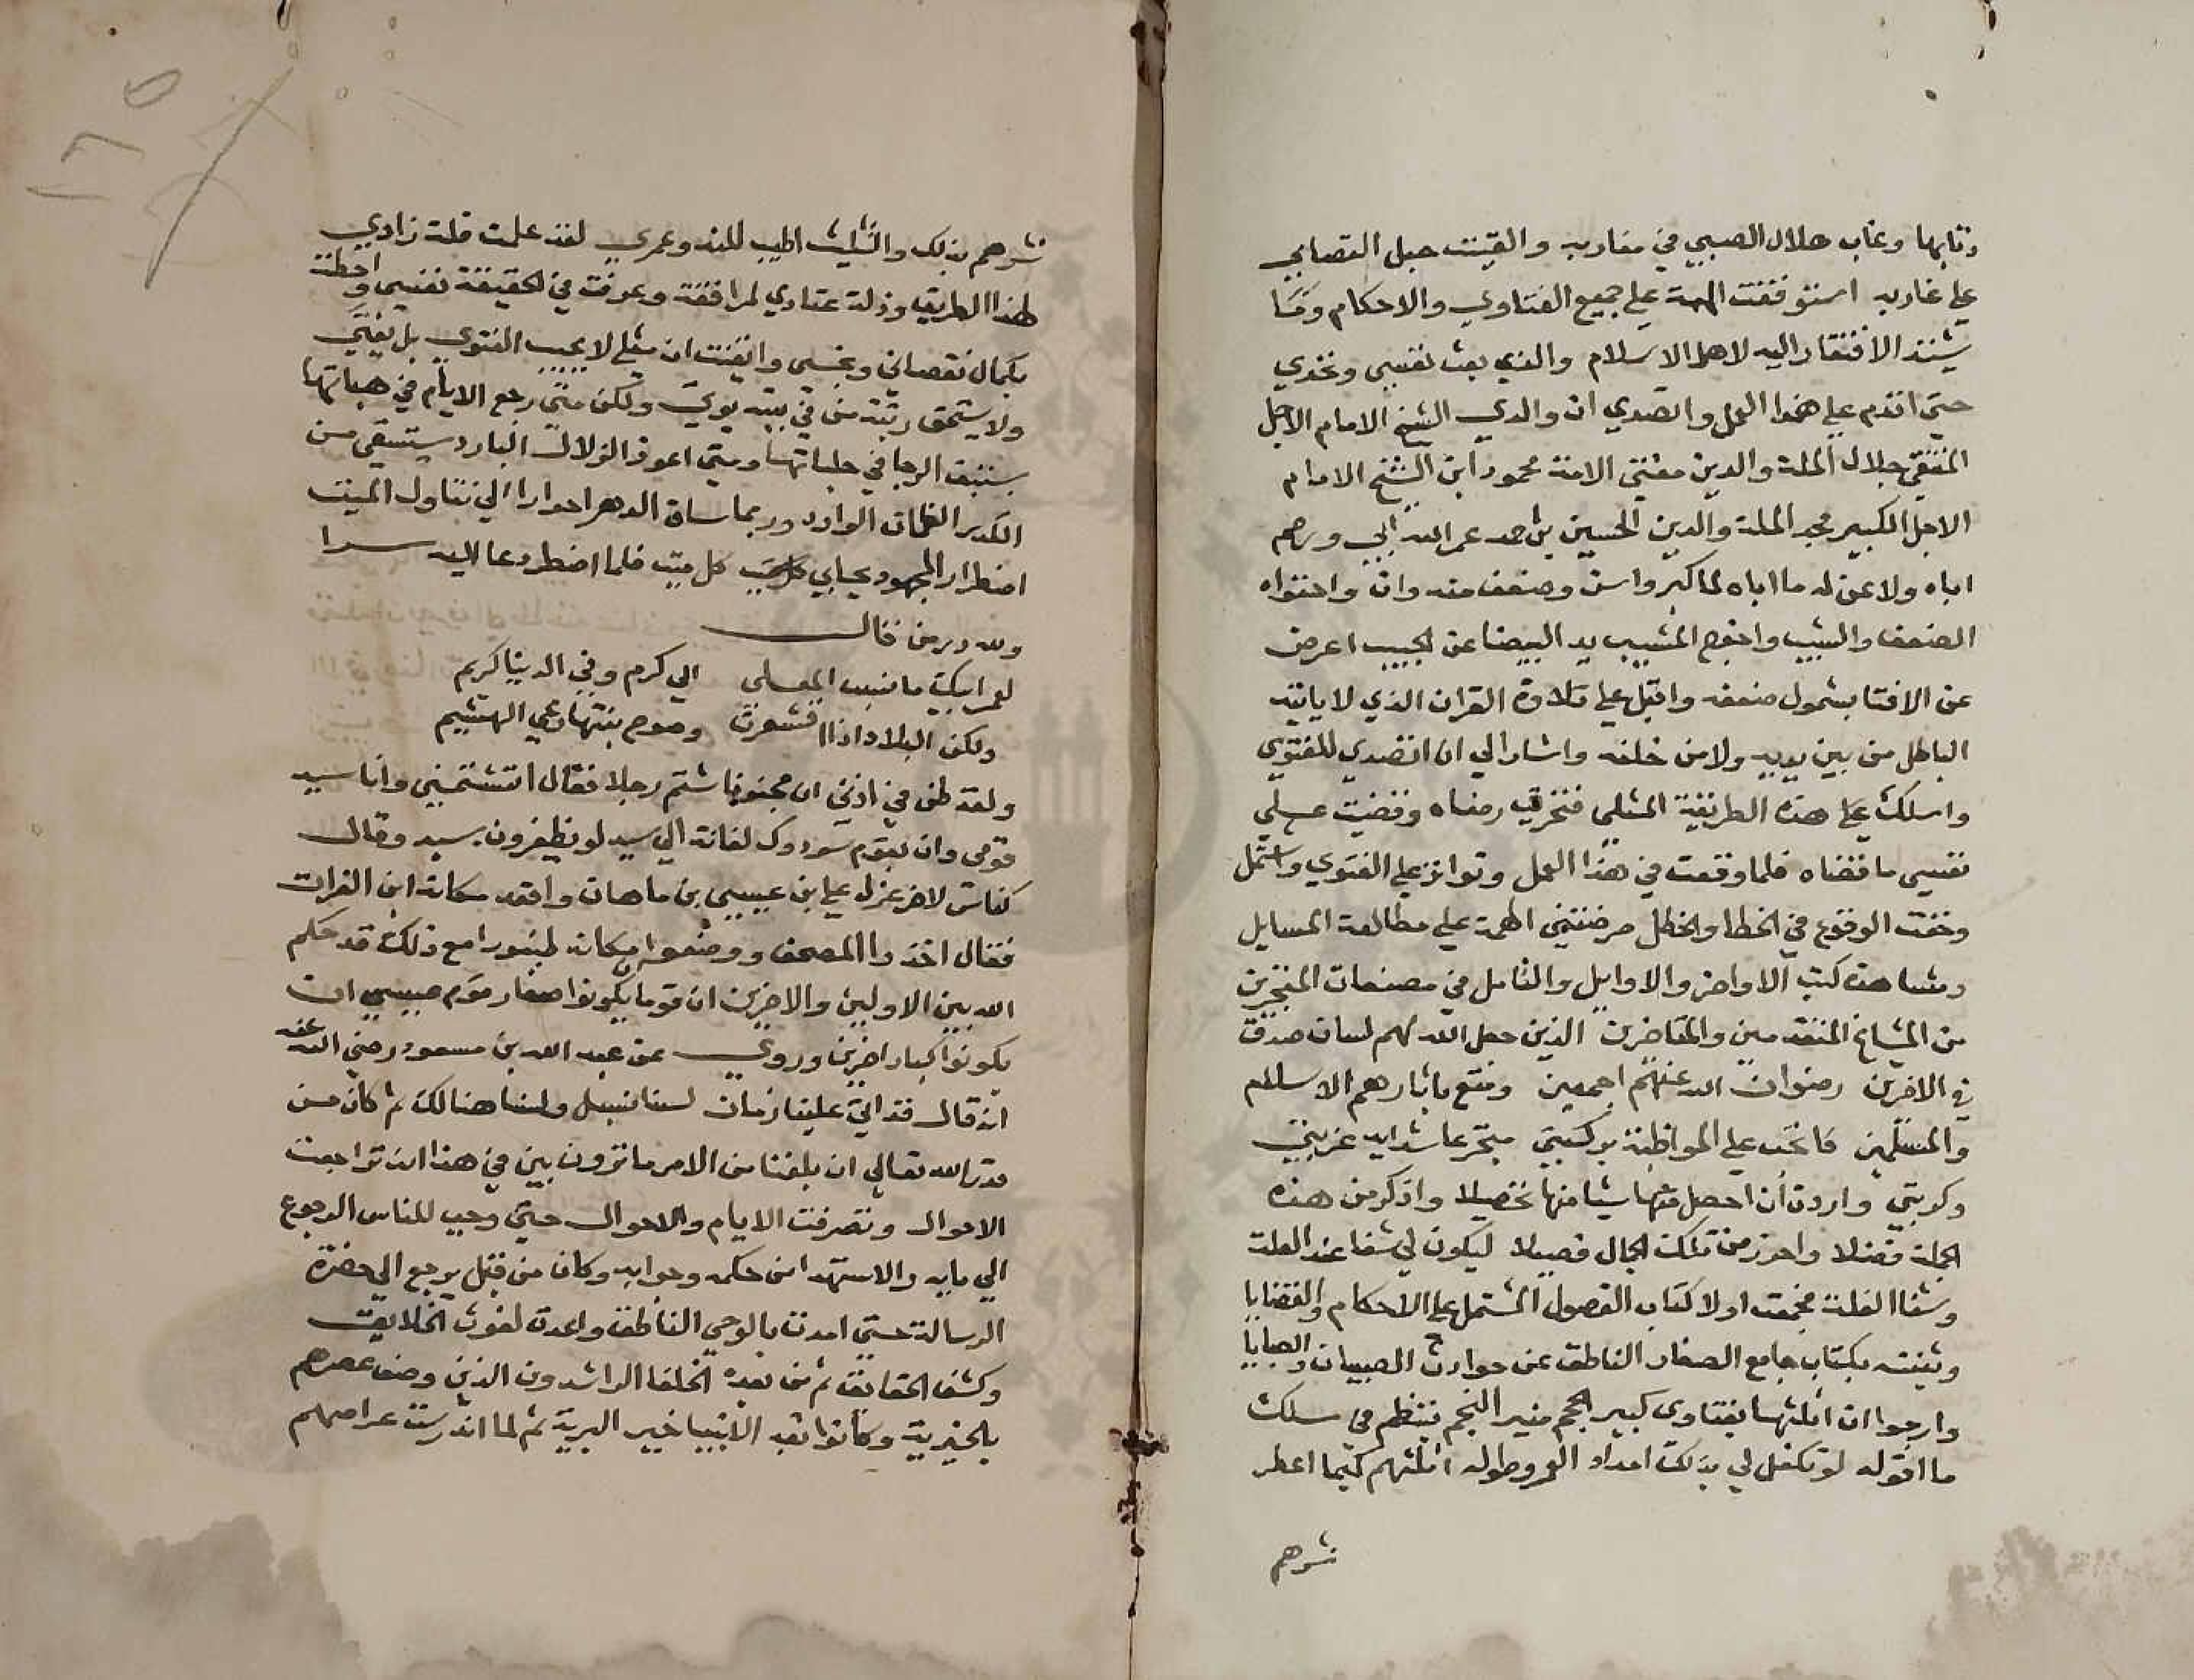 وتابها وغاب هلال الصبي في مغاربه والقيت حبل التصابي
علي غاربه استوقفت الهمة علي جميع الفتاوي والاحكام وما
يشتد الافتقار اليه لاهل الاسلام والذي بعث نفسي وتحدي
حتي اقدم علي هذا العمل واتصدي ان والدي الشيخ الامام الاجل
المتقي جلال الملة والدين مفتي الامة محمود ابن الشيخ الامام
الاجل الكبير مجد الملة والدين الحسين بن احمد عمر الله ابي ورحم
اباه ولا عن له ما اباه لما كبر واسن وضعف متنه وان واحتواه
الضعف والشيب واخرج المشيب يد البيضا عن الجيب اعرض
عن الافتا بشمول ضعفه واقبل علي تلاوة القران الذي لا ياتيه
الباطل من بين يديه ولا من خلفه واشار الي ان اتصدي للفتوي
واسلك علي هذه الطريقة المثلي فتحريت رضاه وقضيت علي
نفسي ما قضاه فلما وقعت في هذا العمل وتواتر علي الفتوي واشتمل
وخفت الوقوع في الخطا والخطل حرضتني الهمة علي مطالعة المسايل
ومشاهدة كتب الاواخر والاوايل والتامل في مصنفات المتبحرين
من المشايخ المتقدمين والمتاخرين الذين جعل الله لهم لسان صدق
في الاخرين رضوان الله عنهم اجمعين ومتع باثارهم الاسلام
والمسلمين فانخت علي المواظبة بركبتي متجرعا شدايد غربتي
وكربتي واردت ان احصل منها شيا منها تحصيلا واذكر من هذه
الجملة فضلا واحرز من تلك الجمال فصيلا ليكون لي شفا عند العلة
وشفا الغلة فجمعت اولا كتاب الفصول المشتمل علي الاحكام والقضايا
وثنيته بكتاب جامع الصغار الناطق عن حوادث الصبيان والصبايا
وارجوا ان اثلثها بفتاوي كبير الحجم منير النجم ينتظم في سلك
ما اقوله لو تكفل لي بذلك امداد العمر وطوله اثلثهم كيما اعطر
نشرهم
نشرهم بذلك والتثليث اطيب للند وعمري لقد علمت قلة زادي
لهذا الطريق وذلة عتادي لمرافقة وعرفت في الحقيقة نفسي واحطت
بكمال نقصاني وبخسي وايقنت ان مثلي لا يجيب الفتوي بل يفتي
ولا يستحق رتبة من في بيته يوتي ولكن متي رجع الايام في هباتها
سنبت الرجا في جلباتها ومتي اعوذ الزلال البارد يستسقي من
الكدر الظمان الوارد وربما ساق الدهر احوارا الي تناول الميت
اضطرار المجهود يحابي كل ميت فلما اضطر دعا اليه سرا
ولله در من قال
لعمر ابيك ما نسب المعلي الي كرم وفي الدنيا كريم
ولكن البلاد اذا اقشعرت وصوح نبتها رعي الهشيم
ولقد طن في اذني ان مجنونا شتم رجلا فقال اتشتمني وانا سيد
قومي وان بقوم سودوك لفاقة الي سيد لو يظفرون بسيد وقال
كناس لاخر عزل علي بن عيسي بن ماهان واقعد مكانه ابن الفرات
فقال اخذوا المصحف ووضعوا مكانه طنبورا مع ذلك قد حكم
الله بين الاولين والاخرين ان قوما يكونوا صغار قوم عسي ان
يكونوا كبار اخرين وروي عن عبد الله بن مسعود رضي الله عنه
انه قال قد اتي علينا زمان لسنا نسئل ولسنا هنالك ثم كان من
قدر الله تعالي ان بلغنا من الامر ما ترون بين في هذا ان تراجعت
الاحوال وتصرفت الايام والاحوال حتي وجب للناس الرجوع
الي بابه والاستهدا من حكمه وجوابه وكان من قبل يرجع الي حضرة
الرسالة حتي امدت بالوحي الناطق واعدت لغوث الخلايق
وكشف الحقايق ثم من بعده الخلفا الراشدون الذين وصف عصرهم
بالخيرية وكانوا بعد الانبيا خير البرية ثم لما اندرست عراصهم